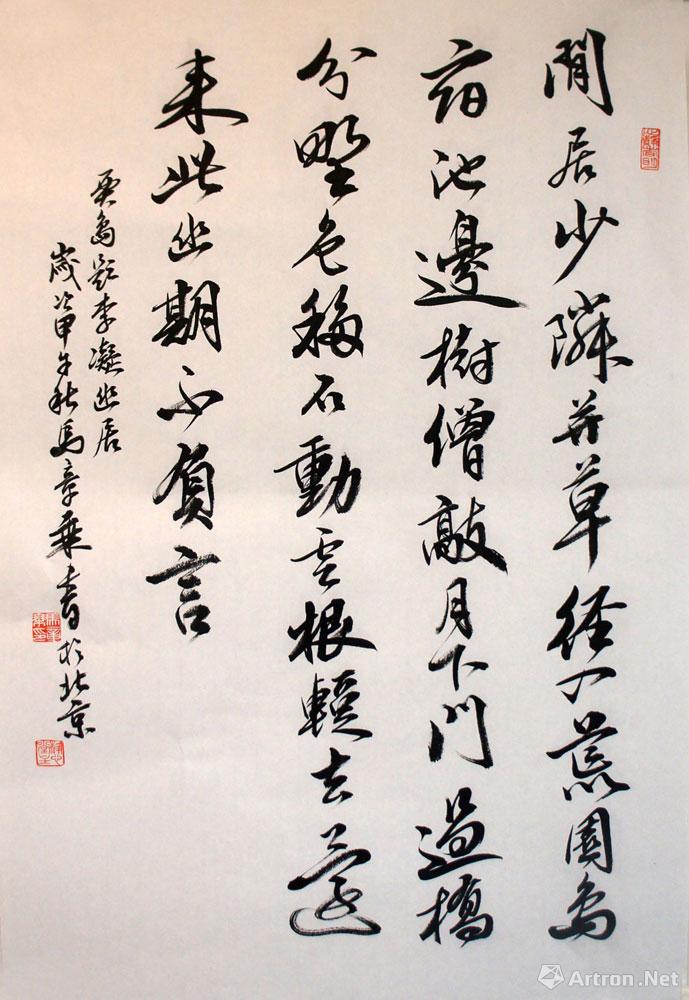 閒居少隣并草径入荒園鳥
宿池邊樹僧敲月下門過橋
分野色移石動雲根暫去還
来此幽期不負言
賈島題李凝幽居
歲次甲午秋馬章乘書於北京
Artron.Net